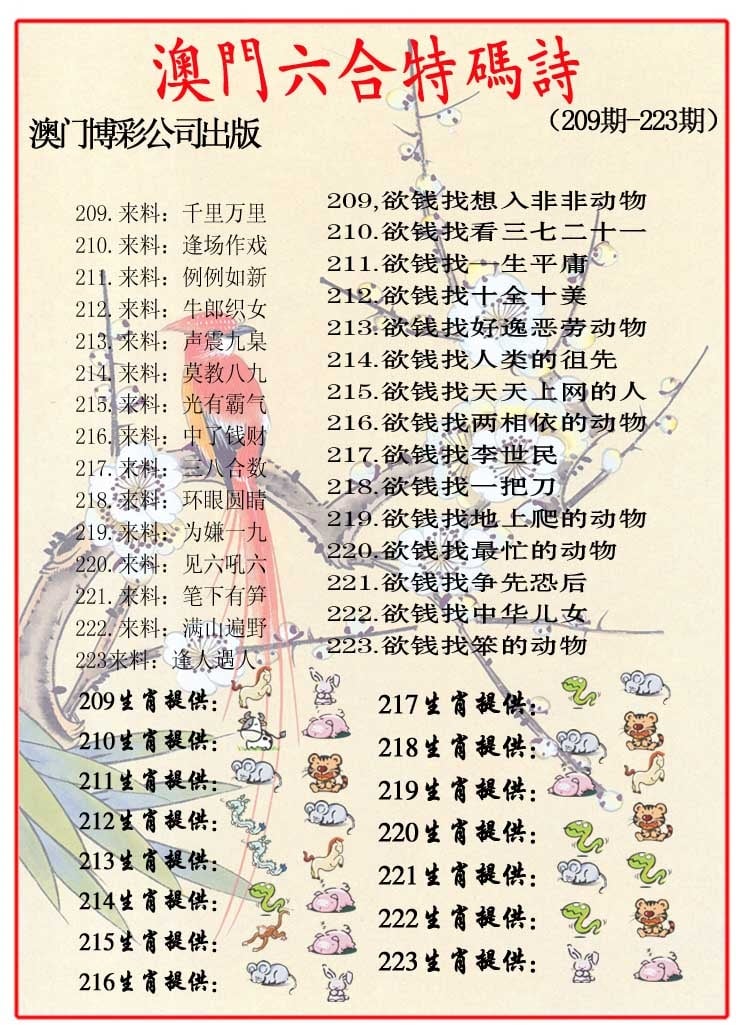 澳門六合特碼詩
澳门博彩公司出版
（209期-223期）
209.来料：千里万里
210.来料：逢场作戏
211.来料：例例如新
212.来料：牛郎织女
213.来料：声震九臯
214.来料：莫教八九
215.来料：光有霸气
216.来料：中了钱财
217.来料：三八合数
218.来料：环眼圆睛
219.来料：为嫌一九
220.来料：见六吼六
221.来料：笔下有笋
222.来料：满山遍野
223来料：逢人遇人
209,欲钱找想入非非动物
210.欲钱找看三七二十一
211.欲钱找一生平庸
212.欲钱找十全十美
213.欲钱找好逸恶劳动物
214.欲钱找人类的祖先
215.欲钱找天天上网的人
216.欲钱找两相依的动物
217.欲钱找李世民
218.欲钱找一把刀
219.欲钱找地上爬的动物
220.欲钱找最忙的动物
221.欲钱找争先恐后
222.欲钱找中华儿女
223.欲钱找笨的动物
209生肖提供：
210生肖提供：
211生肖提供：
212生肖提供：
213生肖提供：
214生肖提供：
215生肖提供：
216生肖提供：
217生肖提供：
218生肖提供：
219生肖提供：
220生肖提供：
221生肖提供：
222生肖提供：
223生肖提供：